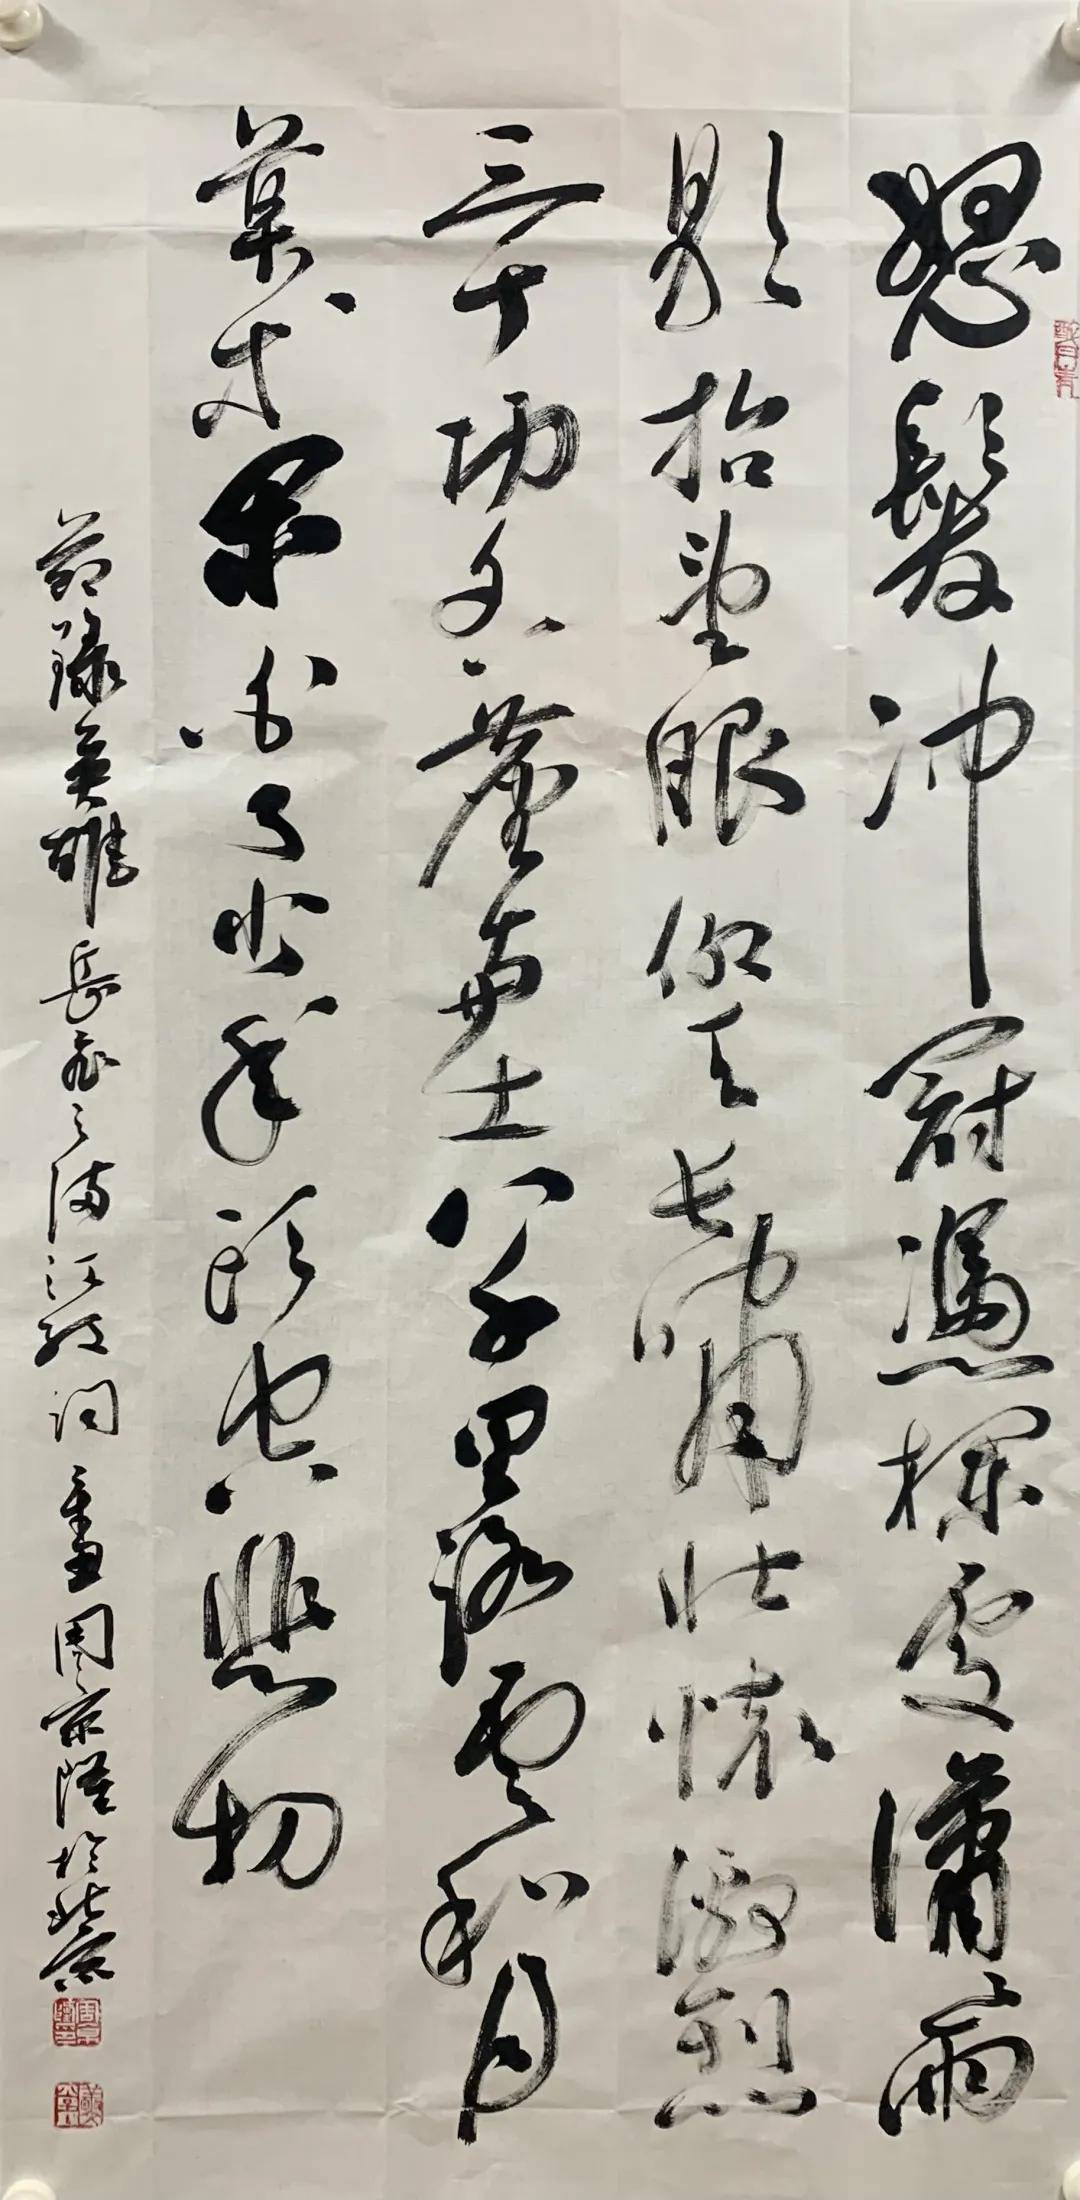 怒髮冲冠憑欄處瀟雨
歇抬望眼仰天長嘯壯懷激烈
三十功名塵與土八千里路雲和月
莫等閑白了少年頭空悲切
節録英雄岳飛之滿江紅詞 周京隆於北京
周京隆印